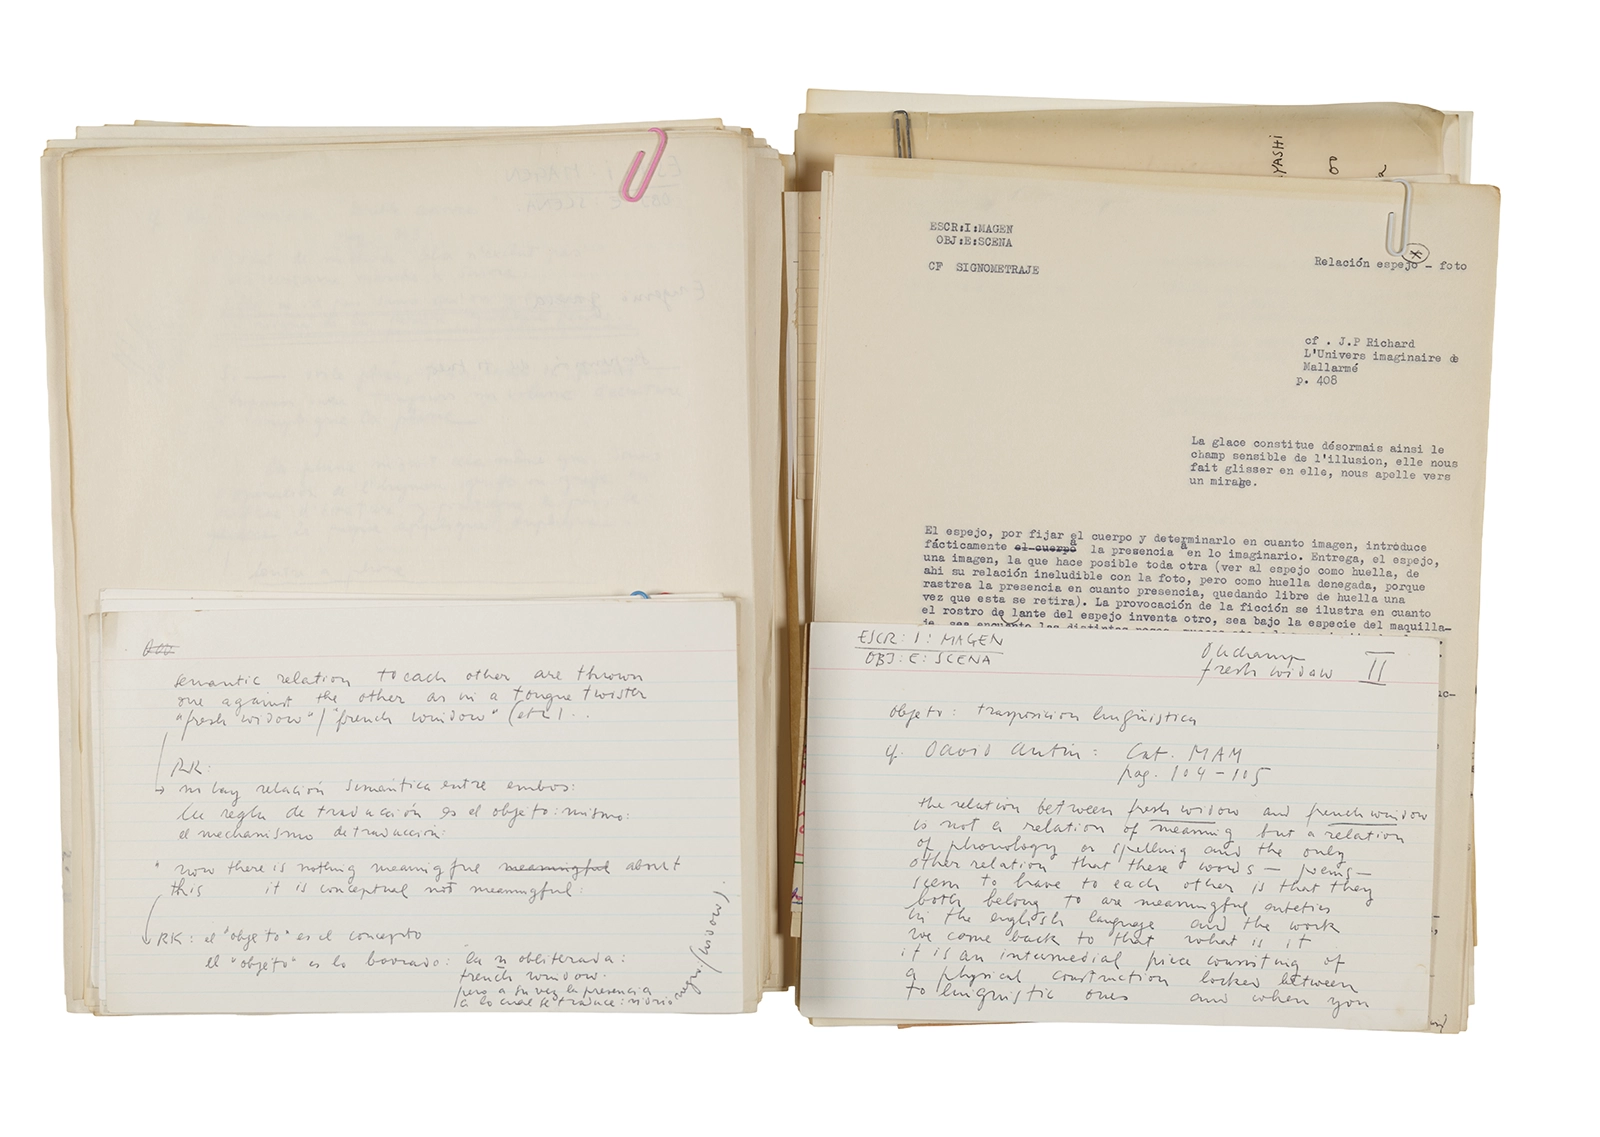 semantic relation to each other are thrown
one against the other as in a tongue twister
"fresh widow" / "french window" (etc) . .
RK:
no hay relación semántica entre embos:
la regla de traducción es el objeto: mismo:
el mechanismo de traducción:
* now there is nothing meaningful meaningful about
this it is conceptual not meaningful:
RK: el "objeto" es el concepto
el "objeto" es lo borrado: la n obliterada:
french window.
pero a su vez la presencia
a lo cual se traduce: vidrio
negro / (widow)
YASHI
8
ESCR:I:MAGEN
OBJ:E:SCENA
CF SIGNOMETRAJE
Relación espejo - foto
*
cf . J.P Richard
L'Univers imaginaire de
Mallarmé
p. 408
La glace constitue désormais ainsi le
champ sensible de l'illusion, elle nous
fait glisser en elle, nous apelle vers
un mirage.
El espejo, por fijar el cuerpo y determinarlo en cuanto imagen, introduce
fácticamente el cuerpo a la presencia a en lo imaginario. Entrega, el espejo,
una imagen, la que hace posible toda otra (ver al espejo como huella, de
ahi su relación ineludible con la foto, pero como huella denegada, porque
rastrea la presencia en cuanto presencia, quedando libre de huella una
vez que esta se retira). La provocación de la ficción se ilustra en cuanto
el rostro delante del espejo inventa otro, sea bajo la especie del maquilla-
ESCR: I: MAGEN
OBJ: E: SCENA
Duchamp
fresh widow II
objeto: trasposicion lingüistica
cf. David Antin: Cat. MAM
pag. 104-105
the relation between fresh widow and french window
is not a relation of meaning but a relation
of phonology or spelling and the only
other relation that these words — poems —
seem to have to each other is that they
both belong to are meaningful entities
in the english language and the work
we come back to that what is it
it is an intermedial piece consisting of
a physical construction locked between
to linguistic ones and when you